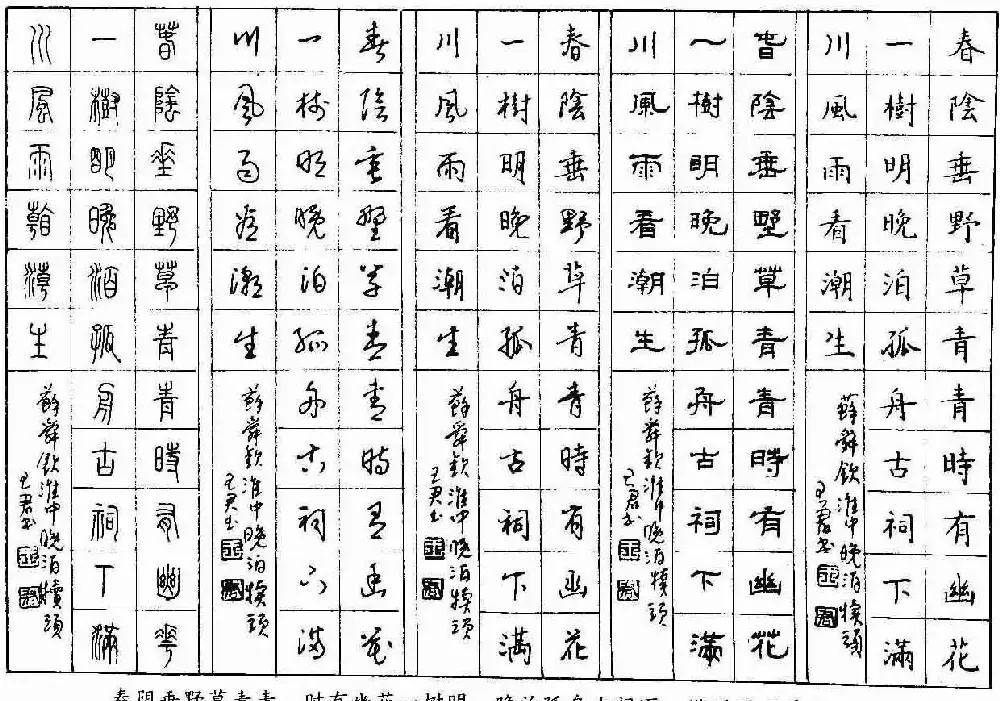 春陰垂野草青青時有幽花
一樹明晚泊孤舟古祠下滿
川風雨看潮生
蘇舜欽淮中晚泊犢頭
王君書
春陰垂野草青青時有幽花
一樹明晚泊孤舟古祠下滿
川風雨看潮生
蘇舜欽淮中晚泊犢頭
王君書
春陰垂野草青青時有幽花
一樹明晚泊孤舟古祠下滿
川風雨看潮生
蘇舜欽淮中晚泊犢頭
王君書
春陰垂野草青青時有幽花
一樹明晚泊孤舟古祠下滿
川風雨看潮生
蘇舜欽淮中晚泊犢頭
王君書
春陰垂野草青青時有幽花
一樹明晚泊孤舟古祠下滿
川風雨看潮生
蘇舜欽淮中晚泊犢頭
王君書
春阴垂野草青青 时有幽花一树明